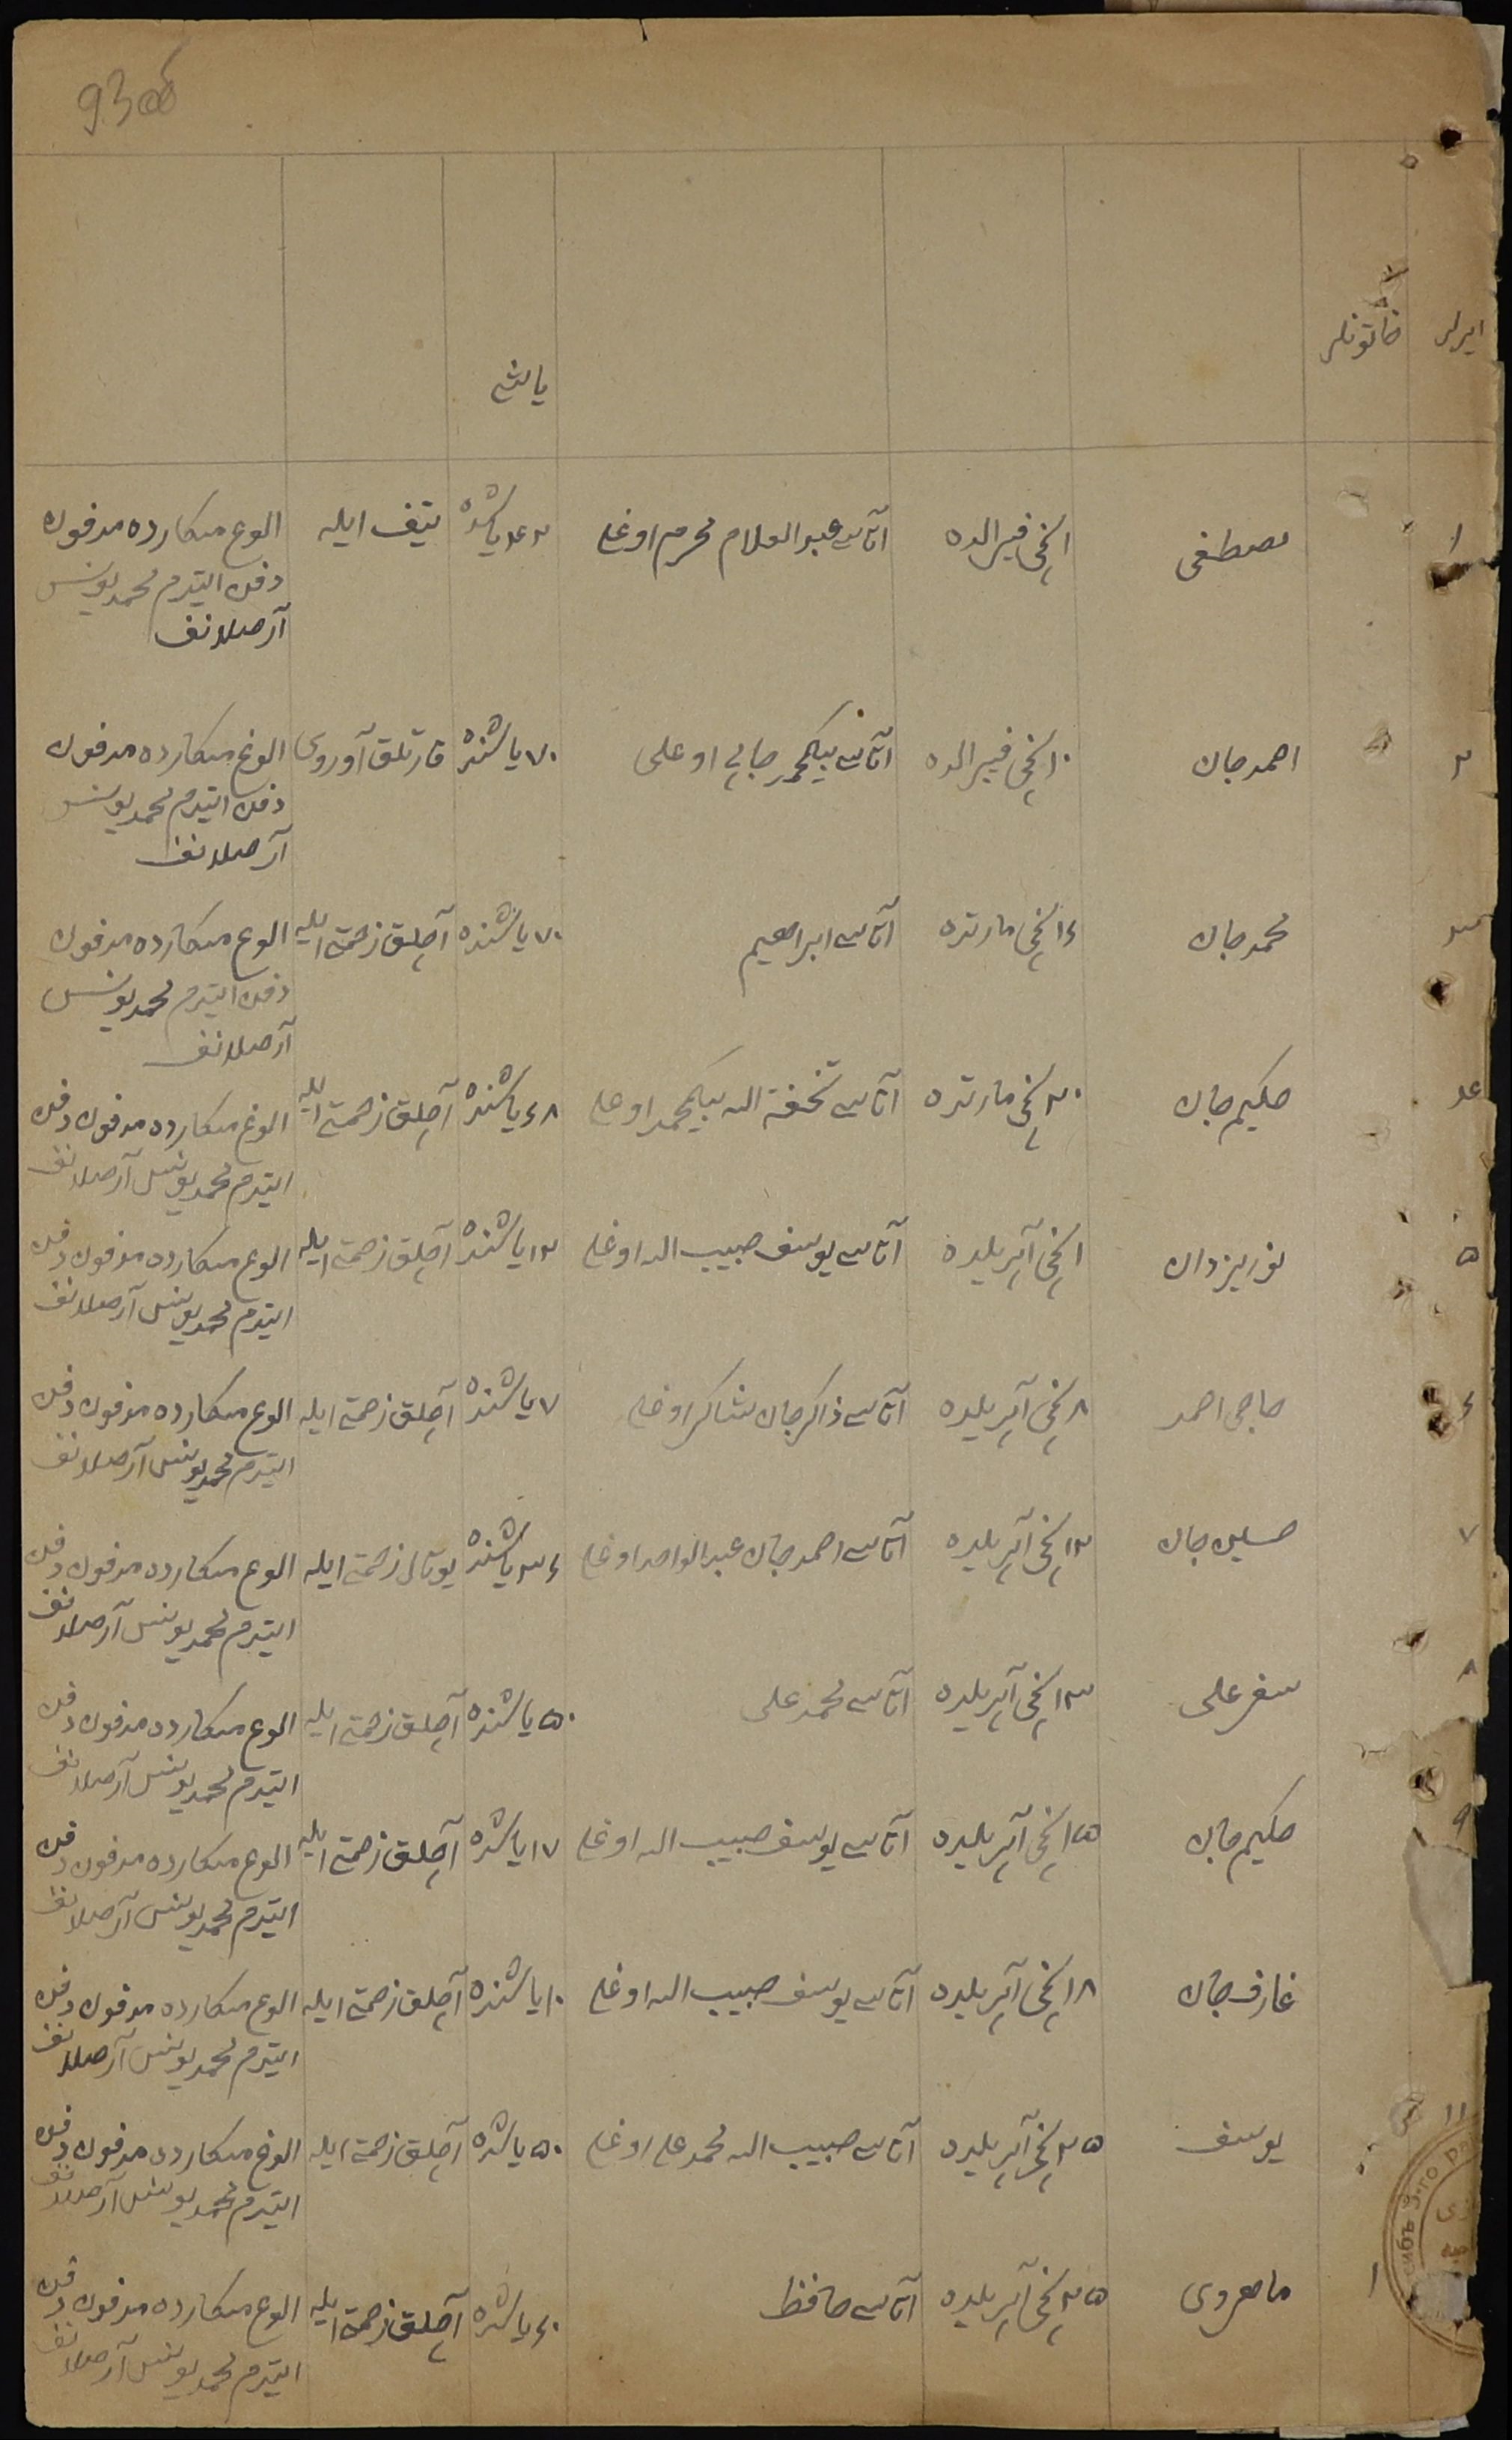 93 об
ايرلر خاتونلر ياشى
١ مصطفى ١نچى فيرالده آتاسى عبدالعلام محرم اوغلى ٤٢ ياشنده تيف ايله الوغ مىكارده مدفون
دفن ايتدم محمد يونس
آرصلانف
٢ احمدجان ١٠نچى فيرالده آتاسى بيكمحمد اوغلى ٧٠ ياشنده قارتلق آوروى الوغ مىكارده مدفون
دفن ايتدم محمد يونس
آرصلانف
٣ محمدجان ١٦نچى مارتده آتاسى ابراهيم ٧٠ ياشنده آچلق زحمتى ايله الوغ مىكارده مدفون
دفن ايتدم محمد يونس
آرصلانف
٤ حكيم جان ٢٠نچى مارتده آتاسى تحفة الله بيكمحمد اوغلى ٦٨ ياشنده آچلق زحمتى ايله الوغ مىكارده مدفون دفن
ايتدم محمد يونس آرصلانف
٥ نوريزدان ١نچى آپريلده آتاسى يوسف حبيب الله اوغلى ١٢ ياشنده آچلق زحمتى ايله الوغ مىكارده مدفون دفن
ايتدم محمد يونس آرصلانف
٦ حاجى احمد ٨نچى آپريلده آتاسى ذاكرجان شاكر اوغلى ٧ ياشنده آچلق زحمتى ايله الوغ مىكارده مدفون دفن
ايتدم محمد يونس آرصلانف
٧ حسين جان ١٢نچى آپريلده آتاسى احمدجان عبدالواحد اوغلى ٣٦ ياشنده يوتال زحمتى ايله الوغ مىكارده مدفون دفن
ايتدم محمد يونس آرصلانف
٨ سفرعلى ١٣نچى آپريلده آتاسى محمدعلى ٥٠ ياشنده آچلق زحمتى ايله الوغ مىكارده مدفون دفن
ايتدم محمد يونس آرصلانف
٩ حكيم جان ١٥نچى آپريلده آتاسى يوسف حبيب الله اوغلى ١٧ ياشنده آچلق زحمتى ايله الوغ مىكارده مدفون دفن
ايتدم محمد يونس آرصلانف
عارف جان ١٨نچى آپريلده آتاسى يوسف حبيب الله اوغلى ١٠ ياشنده آچلق زحمتى ايله الوغ مىكارده مدفون دفن
ايتدم محمد يونس آرصلانف
١١ يوسف ٢٥نچى آپريلده آتاسى حبيب الله محمدعلى اوغلى ٥٠ ياشنده آچلق زحمتى ايله الوغ مىكارده مدفون دفن
ايتدم محمد يونس آرصلانف
١ ماهروى ٢٥نچى آپريلده آتاسى حافظ ٦٠ ياشنده آچلق زحمتى ايله الوغ مىكارده مدفون دفن
ايتدم محمد يونس آرصلانف